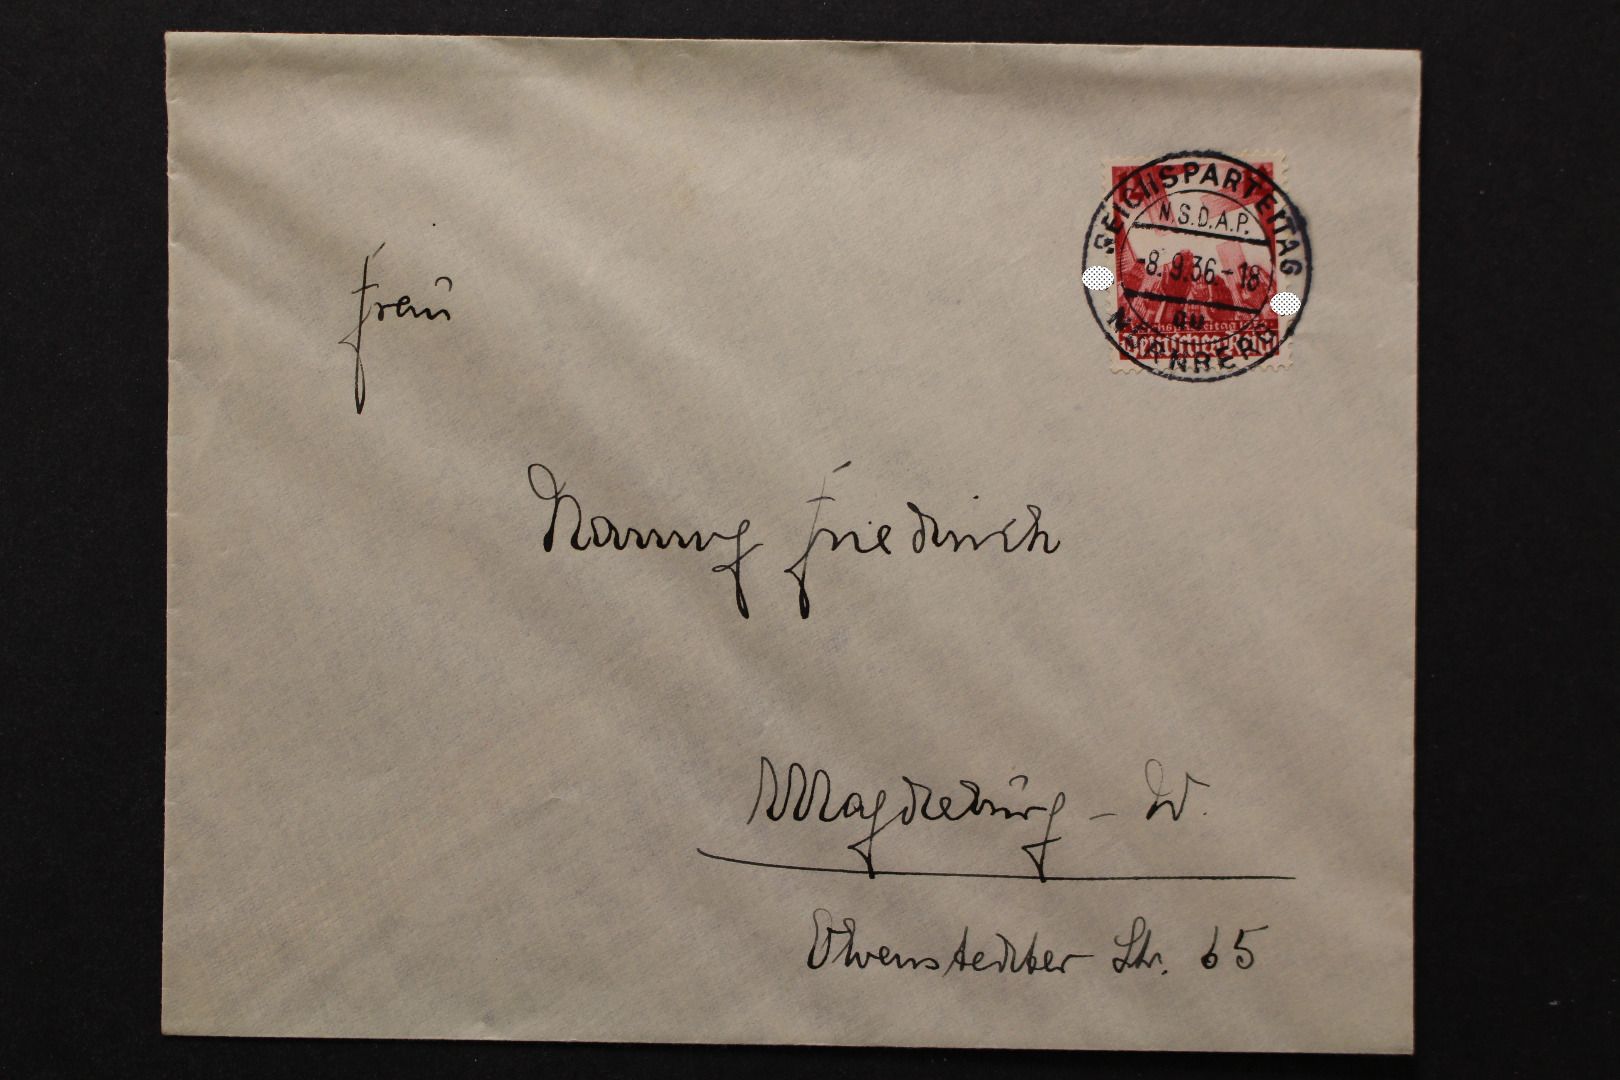 REICHSPARTEITAG
N.S.D.A.P.
-8.9.36-18
NÜRNBERG
Frau
Nanny Friedrich
Magdeburg - W.
Olvenstedter Str. 65